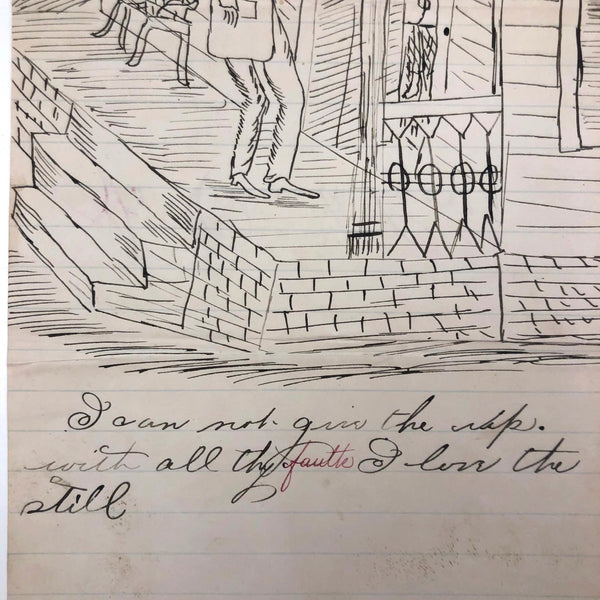 I can not give the up.
with all thy faults I love the
still